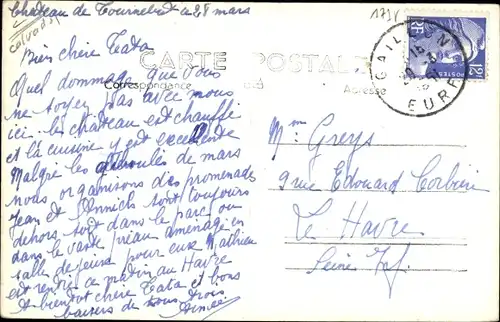 Château de Tournebut ce 28 mars
Calvados
1791
Bien chère Tata
CARTE POSTALE
Correspondance
Adresse
GAILLON
EURE
12F
POSTES
Quel dommage que vous
ne soyez pas avec nous
ici. le château est chauffé
et la cuisine y est excellente
Malgré les giboulées de mars
nous organisons des promenades
Jean et Annick sont toujours
dehors soit dans le parc ou
dans le vaste préau aménagé en
salle de jeux pour eux Mathieu
est rentré ce matin au Havre
A bientôt chère Tata et bons
baisers de nous trois
Aimée
Mme Greys
9 rue Edouard Corbière
Le Havre
Seine Inf.